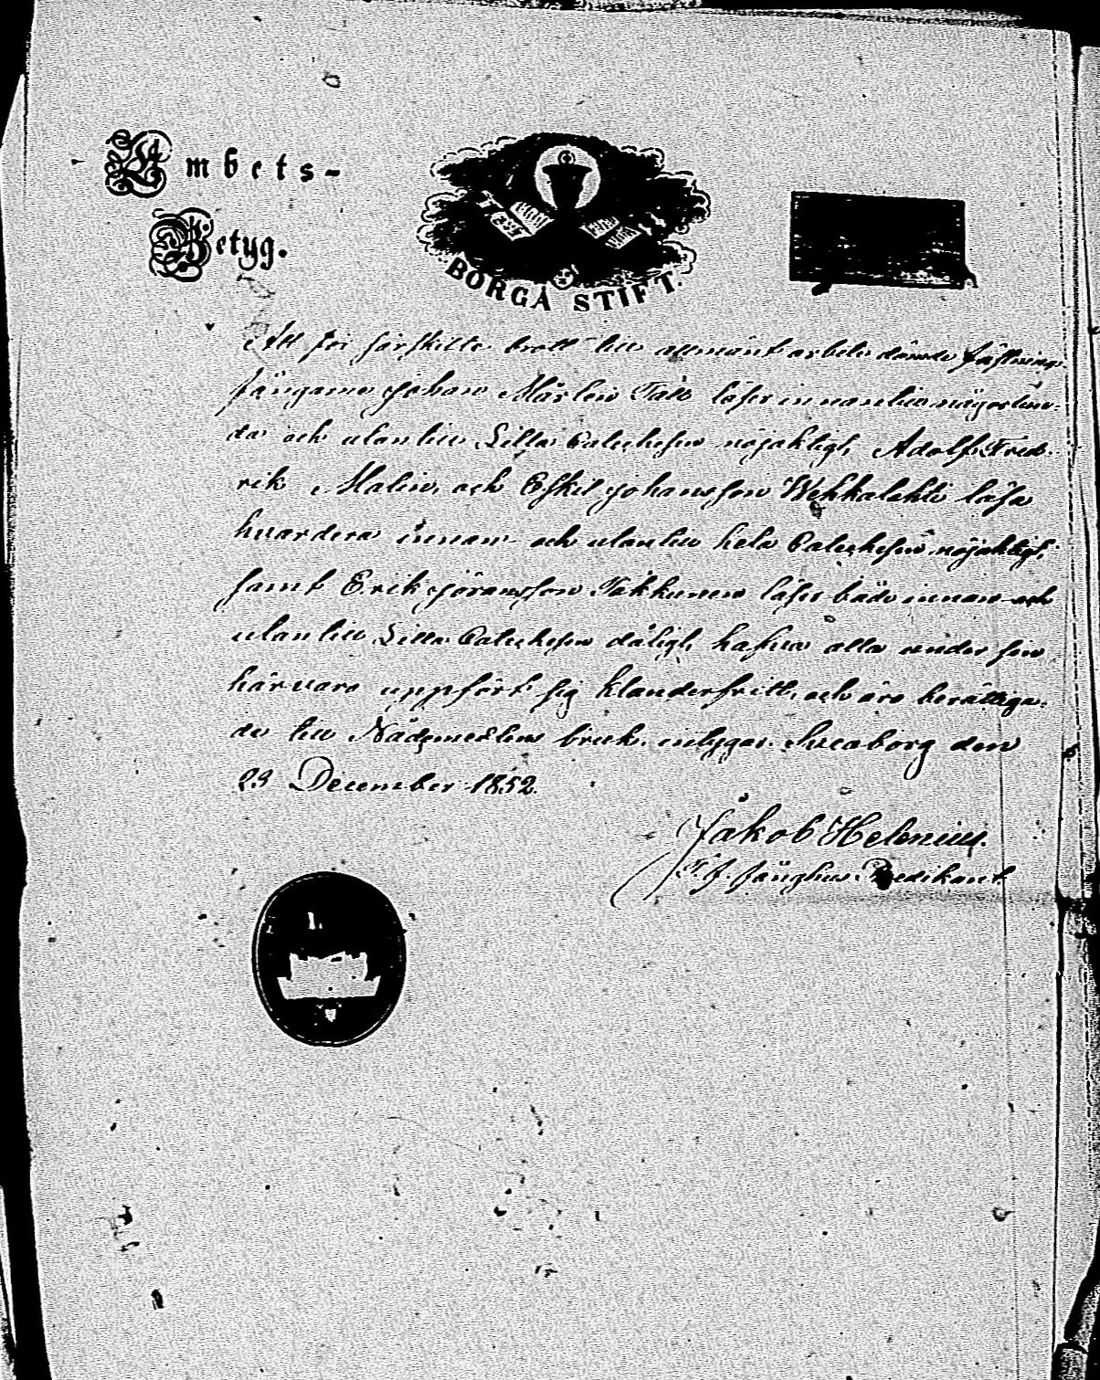 Embets-
Betyg.
BORGÅ STIFT.
Att för särskilte brott till allmänt arbete dömde fästnings-
fångarne Johan Mårten Tall läser innantill någorlun-
da och utantill Lilla Catechesen nöjaktigt, Adolf Fred-
rik Malin, och Eskil Johansson Wehkalahti läsa
hvardera innan- och utantill hela Catechesen nöjaktigt,
samt Erik Jöransson Takkunen läser både innan- och
utantill Lilla Catechesen dåligt, hafva alla under sin
härvaro uppfört sig klanderfritt, och äro berättiga-
de till Nådemedlens bruk, intygar. Sveaborg den
23 December 1852.
Jakob Helenius.
T. f. fånghus Predikant